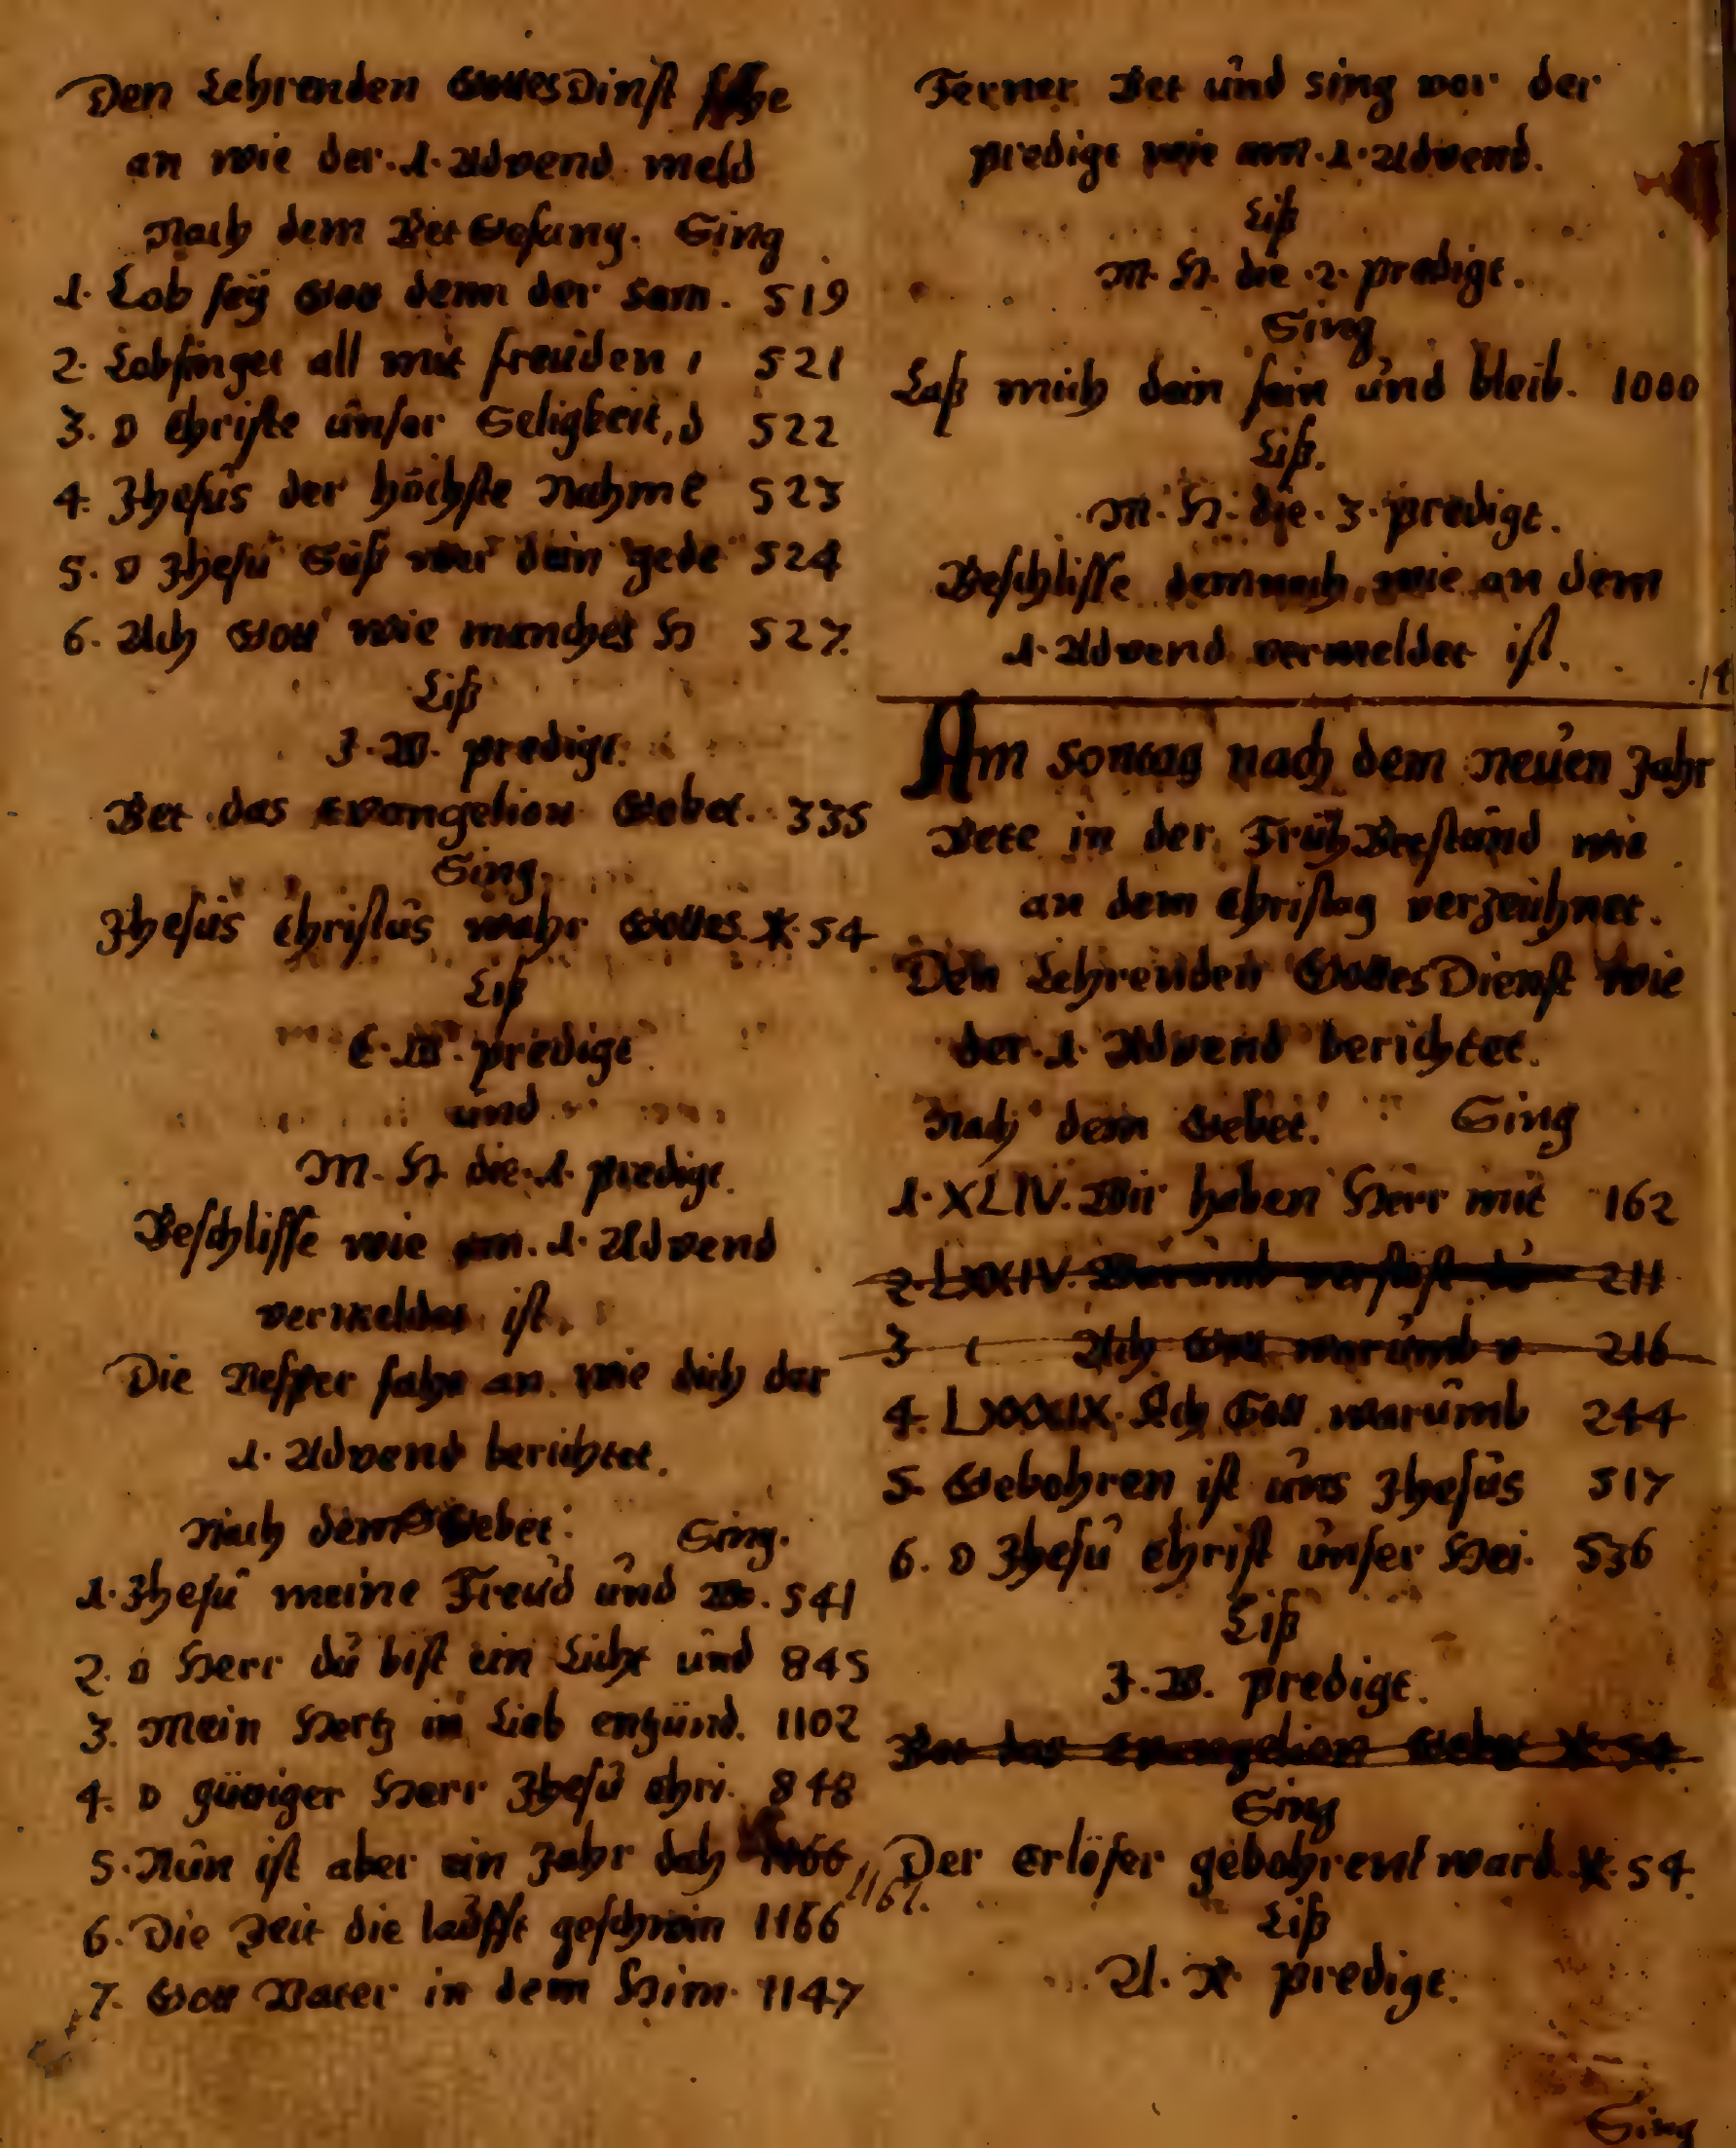 Den Lehrenden GottesDinst fahe
an wie der .1. Advend meld
Nach dem Bet Gesang. Sing
1. Lob seÿ Gott denn der Sam. 519
2. Lobsinget all mit freuden 521
3. O Christe unser Seligkeit, d 522
4. Jhesus der höchste Nahme 523
5. O Jhesu Süß wer dein gede 524
6. Ach Gott wie manches H 527.
Liß
J. W. predigt.
Bet das Evangelion Gebet. 335
Sing.
Jhesus Christus wahr Gottes. *. 54
Liß
C. W. predigt
und
M. H. die .1. predigt.
Beschlisse wie am .1. Advend
vermeldet ist.
Die Vesper fahe an wie dich der
1. Advend berichtet.
Nach dem Gebet. Sing.
1. Jhesu meine Freud und W. 541
2. O Herr du bist ein Licht und 845
3. Mein Hertz in Lieb entzünd. 1102
4. O gütiger Herr Jhesu Chri. 848
5. Nun ist aber ein Jahr dah 1166 1161.
6. Die Zeit die laufft geschwin 1166
7. Gott Vater in dem Him. 1147
Ferner Bet und sing vor der
predigt wie am .1. Advend.
Liß
M. H. die .2. predigt.
Sing
Laß mich dein sein und bleib. 1000
Liß.
M. H. die .3. predigt.
Beschlisse demnach wie an dem
1. Advend vermeldet ist.
Am Sontag nach dem neuen Jahr
Bete in der FrühBetstund wie
an dem Christag verzeichnet.
Den Lehrenden GottesDienst wie
der .1. Advend berichtet.
Nach dem Gebet. Sing
1. XLIV. Wir haben Herr mit 162
2. LXXIV. Warumb verstost du 211
3 Ach Gott warumb v 216
4. LXXXIX. Ach Gott warumb 244
5. Gebohren ist uns Jhesus 517
6. O Jhesu Christ unser Hei. 536
Liß
J. W. predigt.
Bet das Evangelion Gebet *. 54.
Sing
Der Erlöser gebohrent ward. *. 54.
Liß
predigt.
Sing